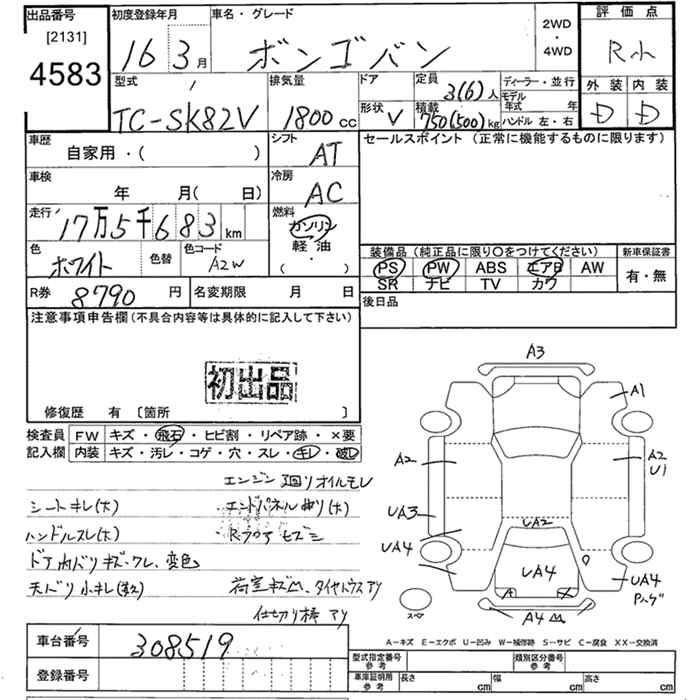 出品番号
[2131]
4583
初度登録年月
16 3月
車名・グレード
ボンゴバン
2WD
・
4WD
評価点
R小
外装 内装
D D
型式
TC-SK82V
排気量
1800cc
ドア
形状
V
定員
3(6)人
積載
750(500)kg
ディーラー・並行
モデル
年式 年
ハンドル 左・右
車歴
自家用・( )
シフト
AT
車検
年 月( 日)
冷房
AC
走行
17万5千683km
燃料
ガソリン
軽・油
( ・ )
色
ホワイト
色替
色コード
A2W
R券
8790円
名変期限 月 日
セールスポイント (正常に機能するものに限ります)
装備品 (純正品に限り○をつけてください)
PS PW ABS エアB AW
SR ナビ TV カワ
新車保証書
有・無
後日品
注意事項申告欄 (不具合内容等は具体的に記入して下さい)
初出品
修復歴 有 [箇所 ]
検査員
記入欄
FW キズ・飛石・ヒビ割・リペア跡・×要
内装 キズ・汚レ・コゲ・穴・スレ・キレ・破レ
エンジン廻りオイルモレ
シートキレ(大)
エンドパネル曲り(大)
ハンドルスレ(大)
Rフロアヒズミ
ドア内バリキズ・ワレ、変色
天バリ小キレ
荷室キズ凹、タイヤハウスアリ
仕切り棒アリ
車台番号
308519
登録番号
A3
A1
A2
A2
U1
UA3
UA4
UA2
UA4
A
X
UA4
スペア
A4凹
A-キズ E-エクボ U-凹み W-補修跡 S-サビ C-腐食 XX-交換済
型式指定番号
参考
類別区分番号
参考
車庫証明用
参考
長さ cm
幅 cm
高さ cm